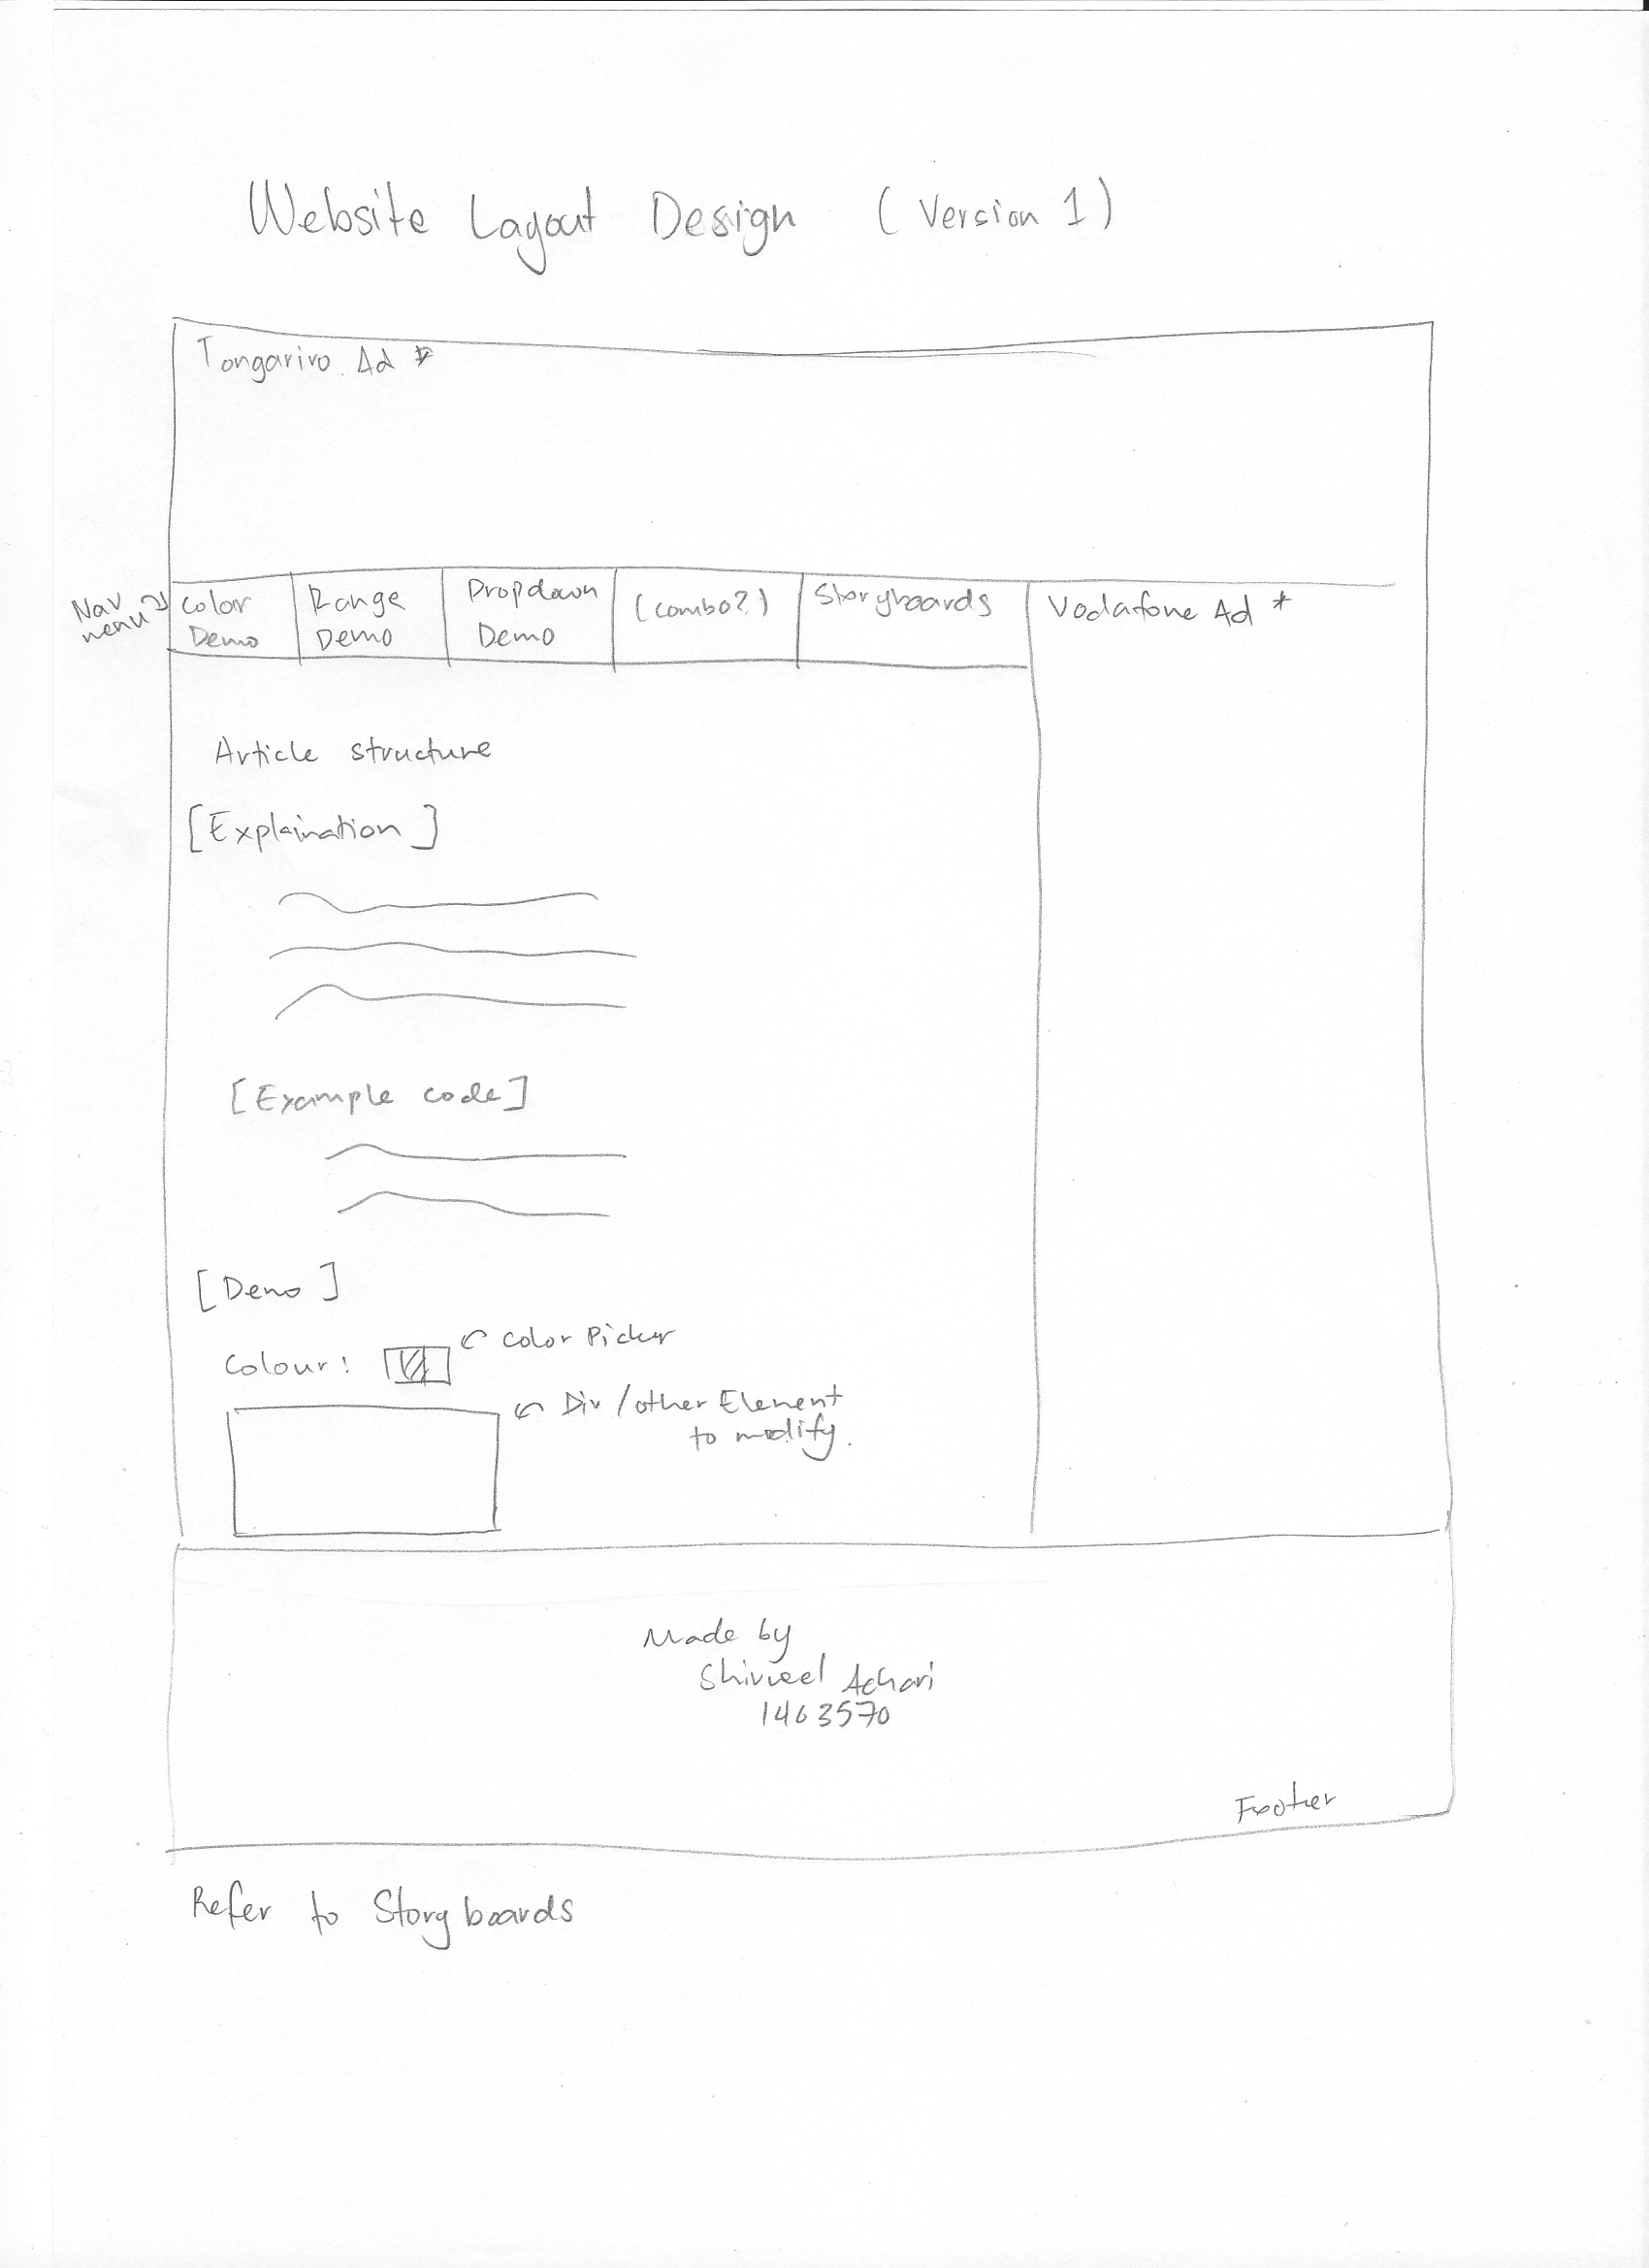 Website Layout Design (Version 1)
Tongariro Ad *
Nav menu
Color Demo
Range Demo
Dropdown Demo
(combo?)
Storyboards
Vodafone Ad *
Article structure
[Explaination]
[Example code]
[Demo]
Colour:
Color Picker
Div / other Element
to modify.
Made by
Shivneel Achari
1463570
Footer
Refer to Storyboards